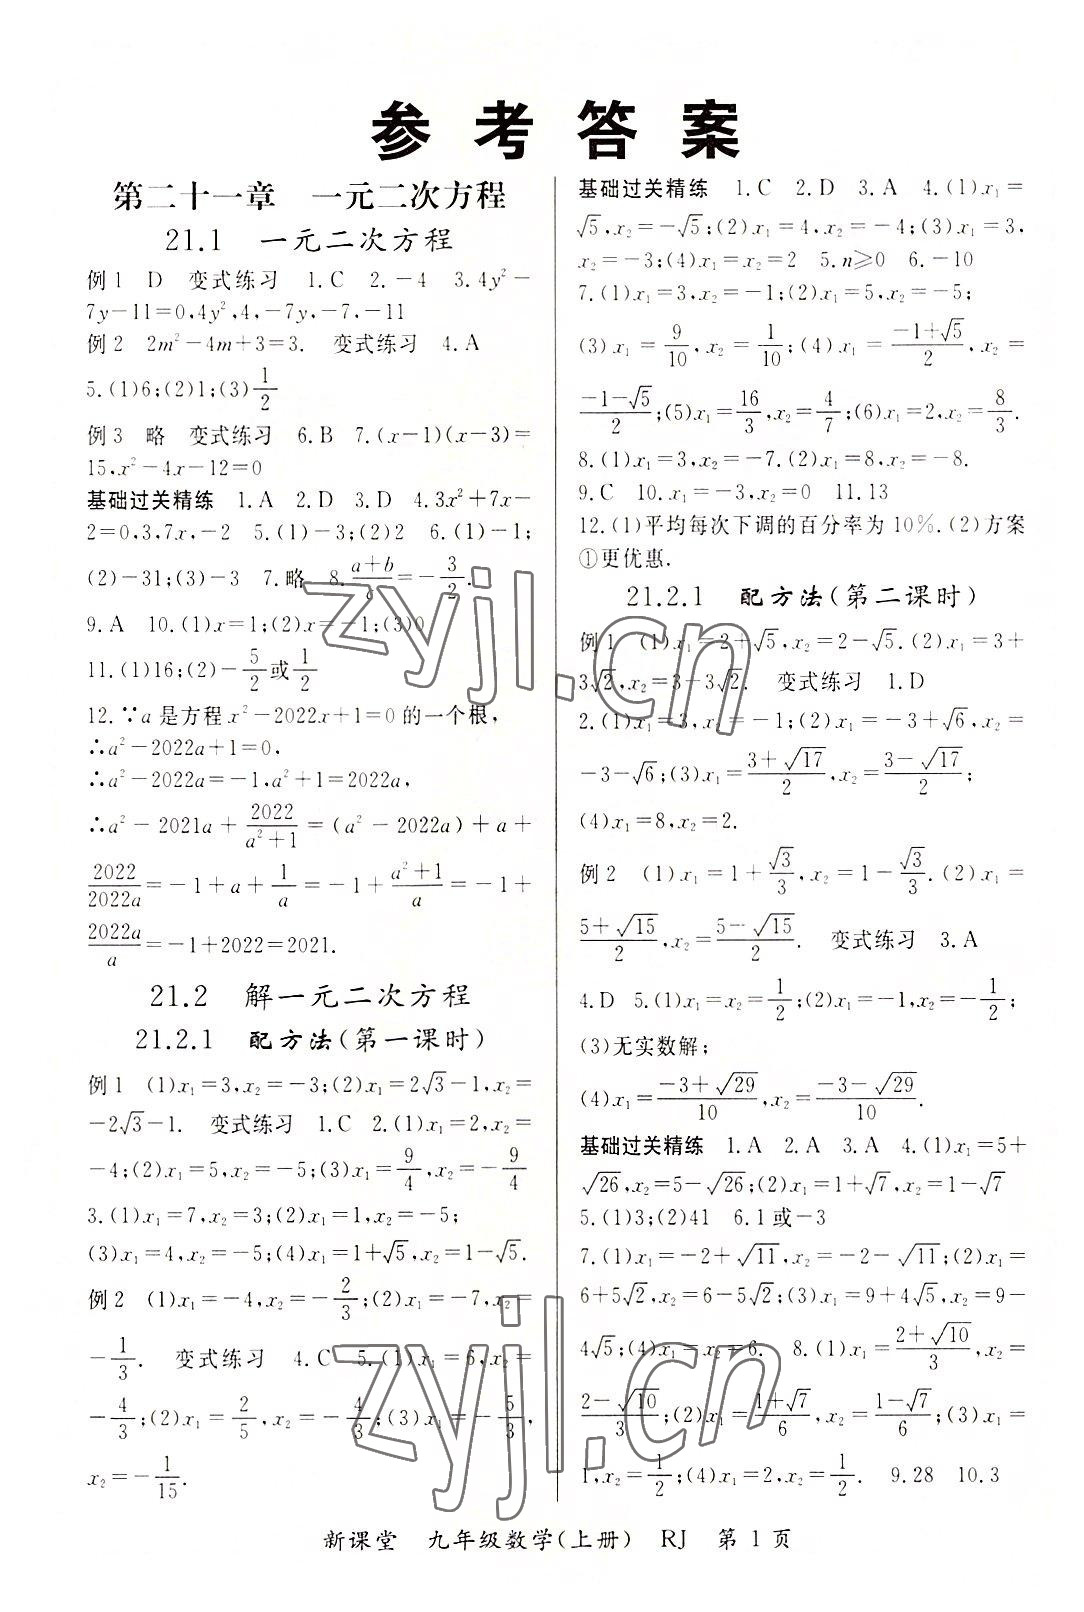 参考答案
第二十一章 一元二次方程
21.1 一元二次方程
例1 D 变式练习 1.C 2.-4 3.4y²-
7y-11=0,4y²,4,-7y,-7,-11
例2 2m²-4m+3=3. 变式练习 4.A
5.(1)6;(2)1;(3)1/2
例3 略 变式练习 6.B 7.(x-1)(x-3)=
15,x²-4x-12=0
基础过关精练 1.A 2.D 3.D 4.3x²+7x-
2=0,3,7x,-2 5.(1)-3;(2)2 6.(1)-1;
(2)-31;(3)-3 7.略 8.(a+b)/c=-3/2.
9.A 10.(1)x=1;(2)x=-1;(3)0
11.(1)16;(2)-5/2或1/2
12.∵a是方程x²-2022x+1=0的一个根,
∴a²-2022a+1=0,
∴a²-2022a=-1,a²+1=2022a,
∴a²-2021a+2022/(a²+1)=(a²-2022a)+a+
2022/2022a=-1+a+1/a=-1+(a²+1)/a=-1+
2022a/a=-1+2022=2021.
21.2 解一元二次方程
21.2.1 配方法(第一课时)
例1 (1)x₁=3,x₂=-3;(2)x₁=2√3-1,x₂=
-2√3-1. 变式练习 1.C 2.(1)x₁=2,x₂=
-4;(2)x₁=5,x₂=-5;(3)x₁=9/4,x₂=-9/4
3.(1)x₁=7,x₂=3;(2)x₁=1,x₂=-5;
(3)x₁=4,x₂=-5;(4)x₁=1+√5,x₂=1-√5.
例2 (1)x₁=-4,x₂=-2/3;(2)x₁=-7,x₂=
-1/3. 变式练习 4.C 5.(1)x₁=6,x₂=
-4/3;(2)x₁=2/5,x₂=-4/3;(3)x₁=-5/3,
x₂=-1/15.
基础过关精练 1.C 2.D 3.A 4.(1)x₁=
√5,x₂=-√5;(2)x₁=4,x₂=-4;(3)x₁=3,
x₂=-3;(4)x₁=x₂=2 5.n≥0 6.-10
7.(1)x₁=3,x₂=-1;(2)x₁=5,x₂=-5;
(3)x₁=9/10,x₂=1/10;(4)x₁=(-1+√5)/2,x₂=
(-1-√5)/2;(5)x₁=16/3,x₂=4/7;(6)x₁=2,x₂=8/3.
8.(1)x₁=3,x₂=-7.(2)x₁=8,x₂=-8.
9.C 10.x₁=-3,x₂=0 11.13
12.(1)平均每次下调的百分率为10%.(2)方案
①更优惠.
21.2.1 配方法(第二课时)
例1 (1)x₁=2+√5,x₂=2-√5.(2)x₁=3+
3√2,x₂=3-3√2. 变式练习 1.D
2.(1)x₁=3,x₂=-1;(2)x₁=-3+√6,x₂=
-3-√6;(3)x₁=(3+√17)/2,x₂=(3-√17)/2;
(4)x₁=8,x₂=2.
例2 (1)x₁=1+√3/3,x₂=1-√3/3.(2)x₁=
(5+√15)/2,x₂=(5-√15)/2. 变式练习 3.A
4.D 5.(1)x₁=x₂=1/2;(2)x₁=-1,x₂=-1/2;
(3)无实数解;
(4)x₁=(-3+√29)/10,x₂=(-3-√29)/10.
基础过关精练 1.A 2.A 3.A 4.(1)x₁=5+
√26,x₂=5-√26;(2)x₁=1+√7,x₂=1-√7
5.(1)3;(2)41 6.1或-3
7.(1)x₁=-2+√11,x₂=-2-√11;(2)x₁=
6+5√2,x₂=6-5√2;(3)x₁=9+4√5,x₂=9-
4√5;(4)x₁=x₂=6. 8.(1)x₁=(2+√10)/3,
(2-√10)/3;(2)x₁=(1+√7)/6,x₂=(1-√7)/6;(3)x₁=
1,x₂=1/2;(4)x₁=2,x₂=1/2. 9.28 10.3
新课堂 九年级数学(上册) RJ 第1页
zyjl.cn
zyjl.cn